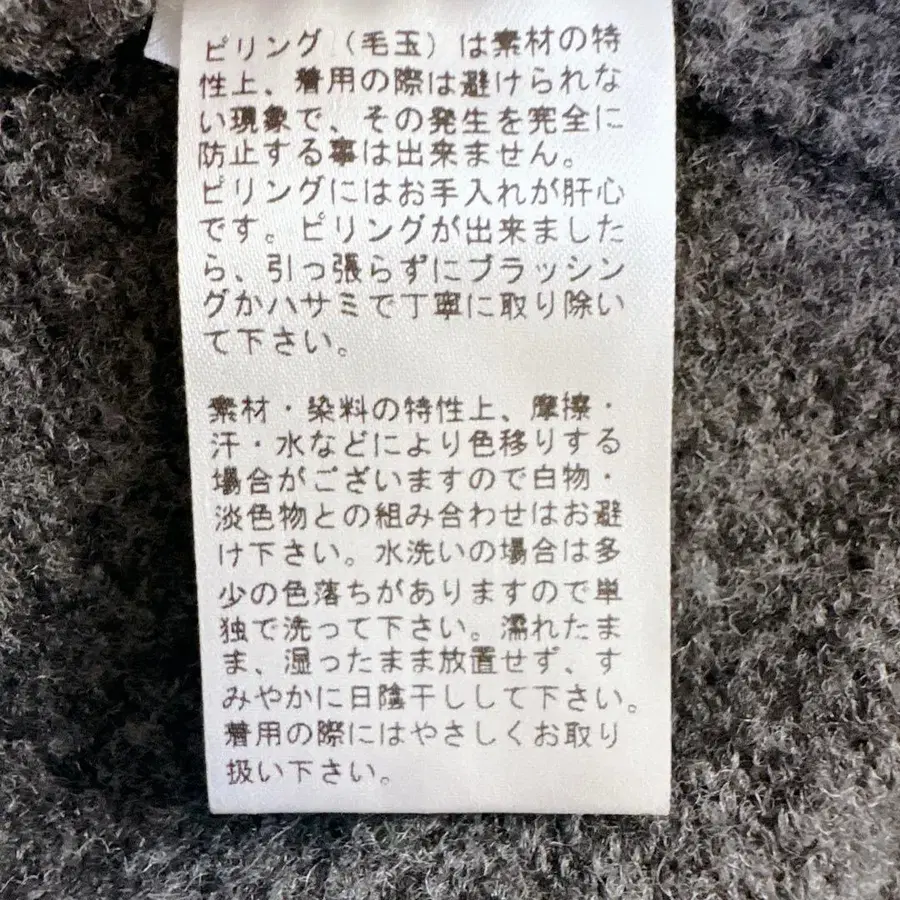 ピリング（毛玉）は素材の特
性上、着用の際は避けられな
い現象で、その発生を完全に
防止する事は出来ません。
ピリングにはお手入れが肝心
です。ピリングが出来ました
ら、引っ張らずにブラッシン
グかハサミで丁寧に取り除い
て下さい。
素材・染料の特性上、摩擦・
汗・水などにより色移りする
場合がございますので白物・
淡色物との組み合わせはお避
け下さい。水洗いの場合は多
少の色落ちがありますので単
独で洗って下さい。濡れたま
ま、湿ったまま放置せず、す
みやかに日陰干しして下さい。
着用の際にはやさしくお取り
扱い下さい。